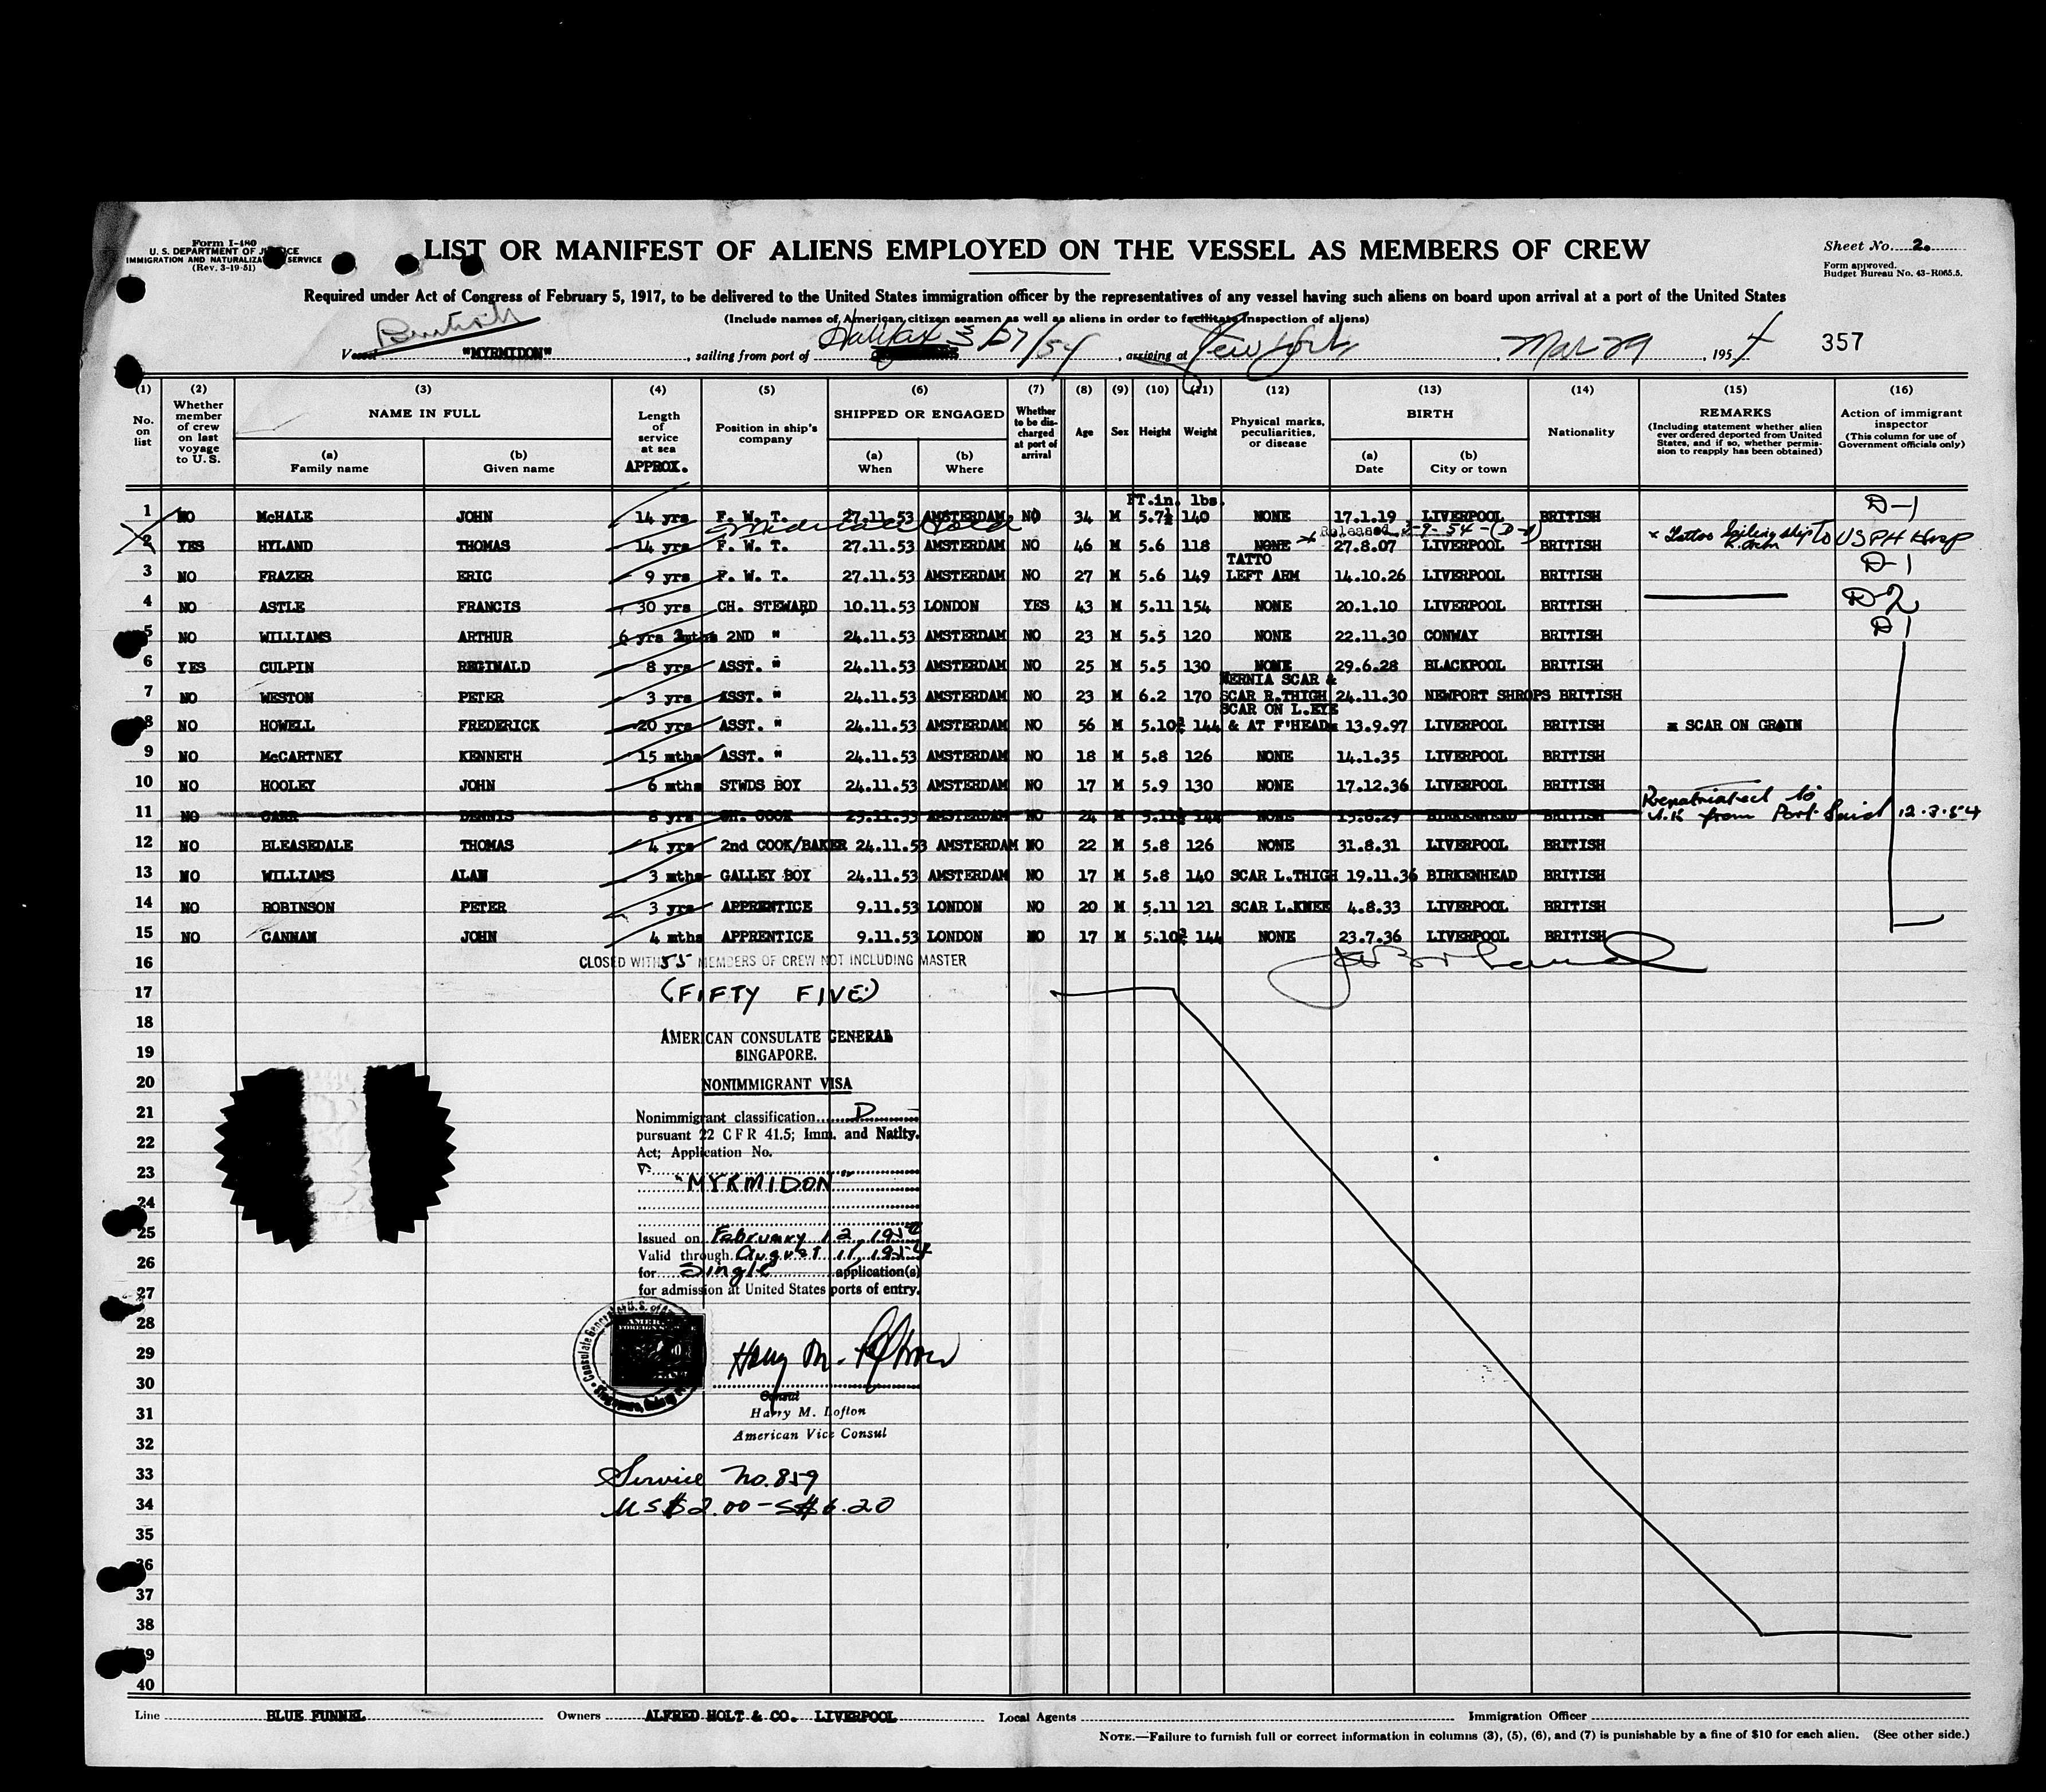 Form I-480
U. S. DEPARTMENT OF JUSTICE
IMMIGRATION AND NATURALIZATION SERVICE
(Rev. 3-19-51)
LIST OR MANIFEST OF ALIENS EMPLOYED ON THE VESSEL AS MEMBERS OF CREW
Sheet No. 2.
Form approved.
Budget Bureau No. 43-R065.5.
Required under Act of Congress of February 5, 1917, to be delivered to the United States immigration officer by the representatives of any vessel having such aliens on board upon arrival at a port of the United States
(Include names of American citizen seamen as well as aliens in order to facilitate inspection of aliens)
British
Vessel "MYRMIDON", sailing from port of Halifax 3/27/54, arriving at New York, Mar 29, 1954 357
(1) (2) (3) (4) (5) (6) (7) (8) (9) (10) (11) (12) (13) (14) (15) (16)
No. on list
Whether member of crew on last voyage to U.S.
NAME IN FULL
(a) Family name
(b) Given name
Length of service at sea
APPROX.
Position in ship's company
SHIPPED OR ENGAGED
(a) When
(b) Where
Whether to be discharged at port of arrival
Age
Sex
Height
Weight
Physical marks, peculiarities, or disease
BIRTH
(a) Date
(b) City or town
Nationality
REMARKS
(Including statement whether alien ever ordered deported from United States, and if so, whether permission to reapply has been obtained)
Action of immigrant inspector
(This column for use of Government officials only)
FT.in. lbs.
1 NO McHALE JOHN 14 yrs F. W. T. 27.11.53 AMSTERDAM NO 34 M 5.7½ 140 NONE 17.1.19 LIVERPOOL BRITISH D-1
Medical Hold
Released 3-9-54-(D-1)
2 YES HYLAND THOMAS 14 yrs F. W. T. 27.11.53 AMSTERDAM NO 46 M 5.6 118 NONE x 27.8.07 LIVERPOOL BRITISH x Tattoo Sailing ship To USPH Hosp
TATTO
3 NO FRAZER ERIC 9 yrs F. W. T. 27.11.53 AMSTERDAM NO 27 M 5.6 149 LEFT ARM 14.10.26 LIVERPOOL BRITISH D-1
4 NO ASTLE FRANCIS 30 yrs CH. STEWARD 10.11.53 LONDON YES 43 M 5.11 154 NONE 20.1.10 LIVERPOOL BRITISH D-2
5 NO WILLIAMS ARTHUR 6 yrs 2mths 2ND " 24.11.53 AMSTERDAM NO 23 M 5.5 120 NONE 22.11.30 CONWAY BRITISH D1
6 YES CULPIN REGINALD 8 yrs ASST. " 24.11.53 AMSTERDAM NO 25 M 5.5 130 NONE 29.6.28 BLACKPOOL BRITISH
HERNIA SCAR &
7 NO WESTON PETER 3 yrs ASST. " 24.11.53 AMSTERDAM NO 23 M 6.2 170 SCAR R.THIGH 24.11.30 NEWPORT SHROPS BRITISH
SCAR ON L.EYE
8 NO HOWELL FREDERICK 20 yrs ASST. " 24.11.53 AMSTERDAM NO 56 M 5.10½ 144 & AT F'HEAD x 13.9.97 LIVERPOOL BRITISH x SCAR ON GRAIN
9 NO McCARTNEY KENNETH 15 mths ASST. " 24.11.53 AMSTERDAM NO 18 M 5.8 126 NONE 14.1.35 LIVERPOOL BRITISH
10 NO HOOLEY JOHN 6 mths STWDS BOY 24.11.53 AMSTERDAM NO 17 M 5.9 130 NONE 17.12.36 LIVERPOOL BRITISH
11 NO CARR DENNIS 8 yrs CH. COOK 25.11.53 AMSTERDAM NO 24 M 5.11½ 144 NONE 15.8.29 BIRKENHEAD BRITISH Repatriated to U.K from Port Said 12.3.54
12 NO BLEASEDALE THOMAS 4 yrs 2nd COOK/BAKER 24.11.53 AMSTERDAM NO 22 M 5.8 126 NONE 31.8.31 LIVERPOOL BRITISH
13 NO WILLIAMS ALAN 3 mths GALLEY BOY 24.11.53 AMSTERDAM NO 17 M 5.8 140 SCAR L.THIGH 19.11.36 BIRKENHEAD BRITISH
14 NO ROBINSON PETER 3 yrs APPRENTICE 9.11.53 LONDON NO 20 M 5.11 121 SCAR L.KNEE 4.8.33 LIVERPOOL BRITISH
15 NO CANNAN JOHN 4 mths APPRENTICE 9.11.53 LONDON NO 17 M 5.10½ 144 NONE 23.7.36 LIVERPOOL BRITISH
16 CLOSED WITH 55 MEMBERS OF CREW NOT INCLUDING MASTER
17 (FIFTY FIVE)
18
AMERICAN CONSULATE GENERAL
19 SINGAPORE.
20 NONIMMIGRANT VISA
21 Nonimmigrant classification D
22 pursuant 22 CFR 41.5; Imm. and Natlty.
Act; Application No.
23 V.
24 "MYRMIDON"
25 Issued on February 12, 1954
Valid through August 11, 1954
26 for Single application(s)
27 for admission at United States ports of entry.
28
29 Harry M. Lofton
30 Consul
31 Harry M. Lofton
32 American Vice Consul
33 Service No. 859
34 US$2.00 - S$6.20
35
36
37
38
39
40
Line BLUE FUNNEL Owners ALFRED HOLT & CO. LIVERPOOL Local Agents Immigration Officer
NOTE.—Failure to furnish full or correct information in columns (3), (5), (6), and (7) is punishable by a fine of $10 for each alien. (See other side.)